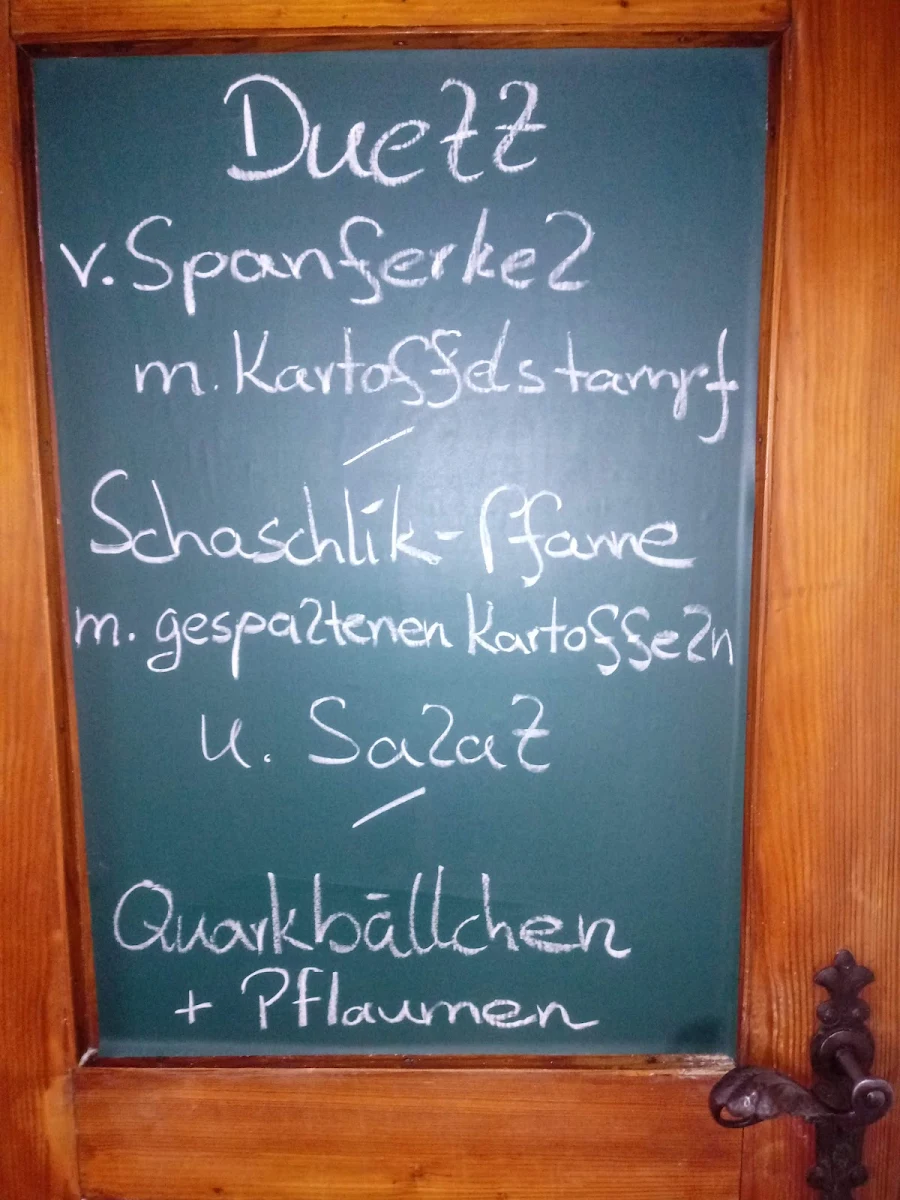 Duett
v. Spanferkel
m. Kartoffelstampf
/
Schaschlik-Pfanne
m. gespaltenen Kartoffeln
u. Salat
/
Quarkbällchen
+ Pflaumen